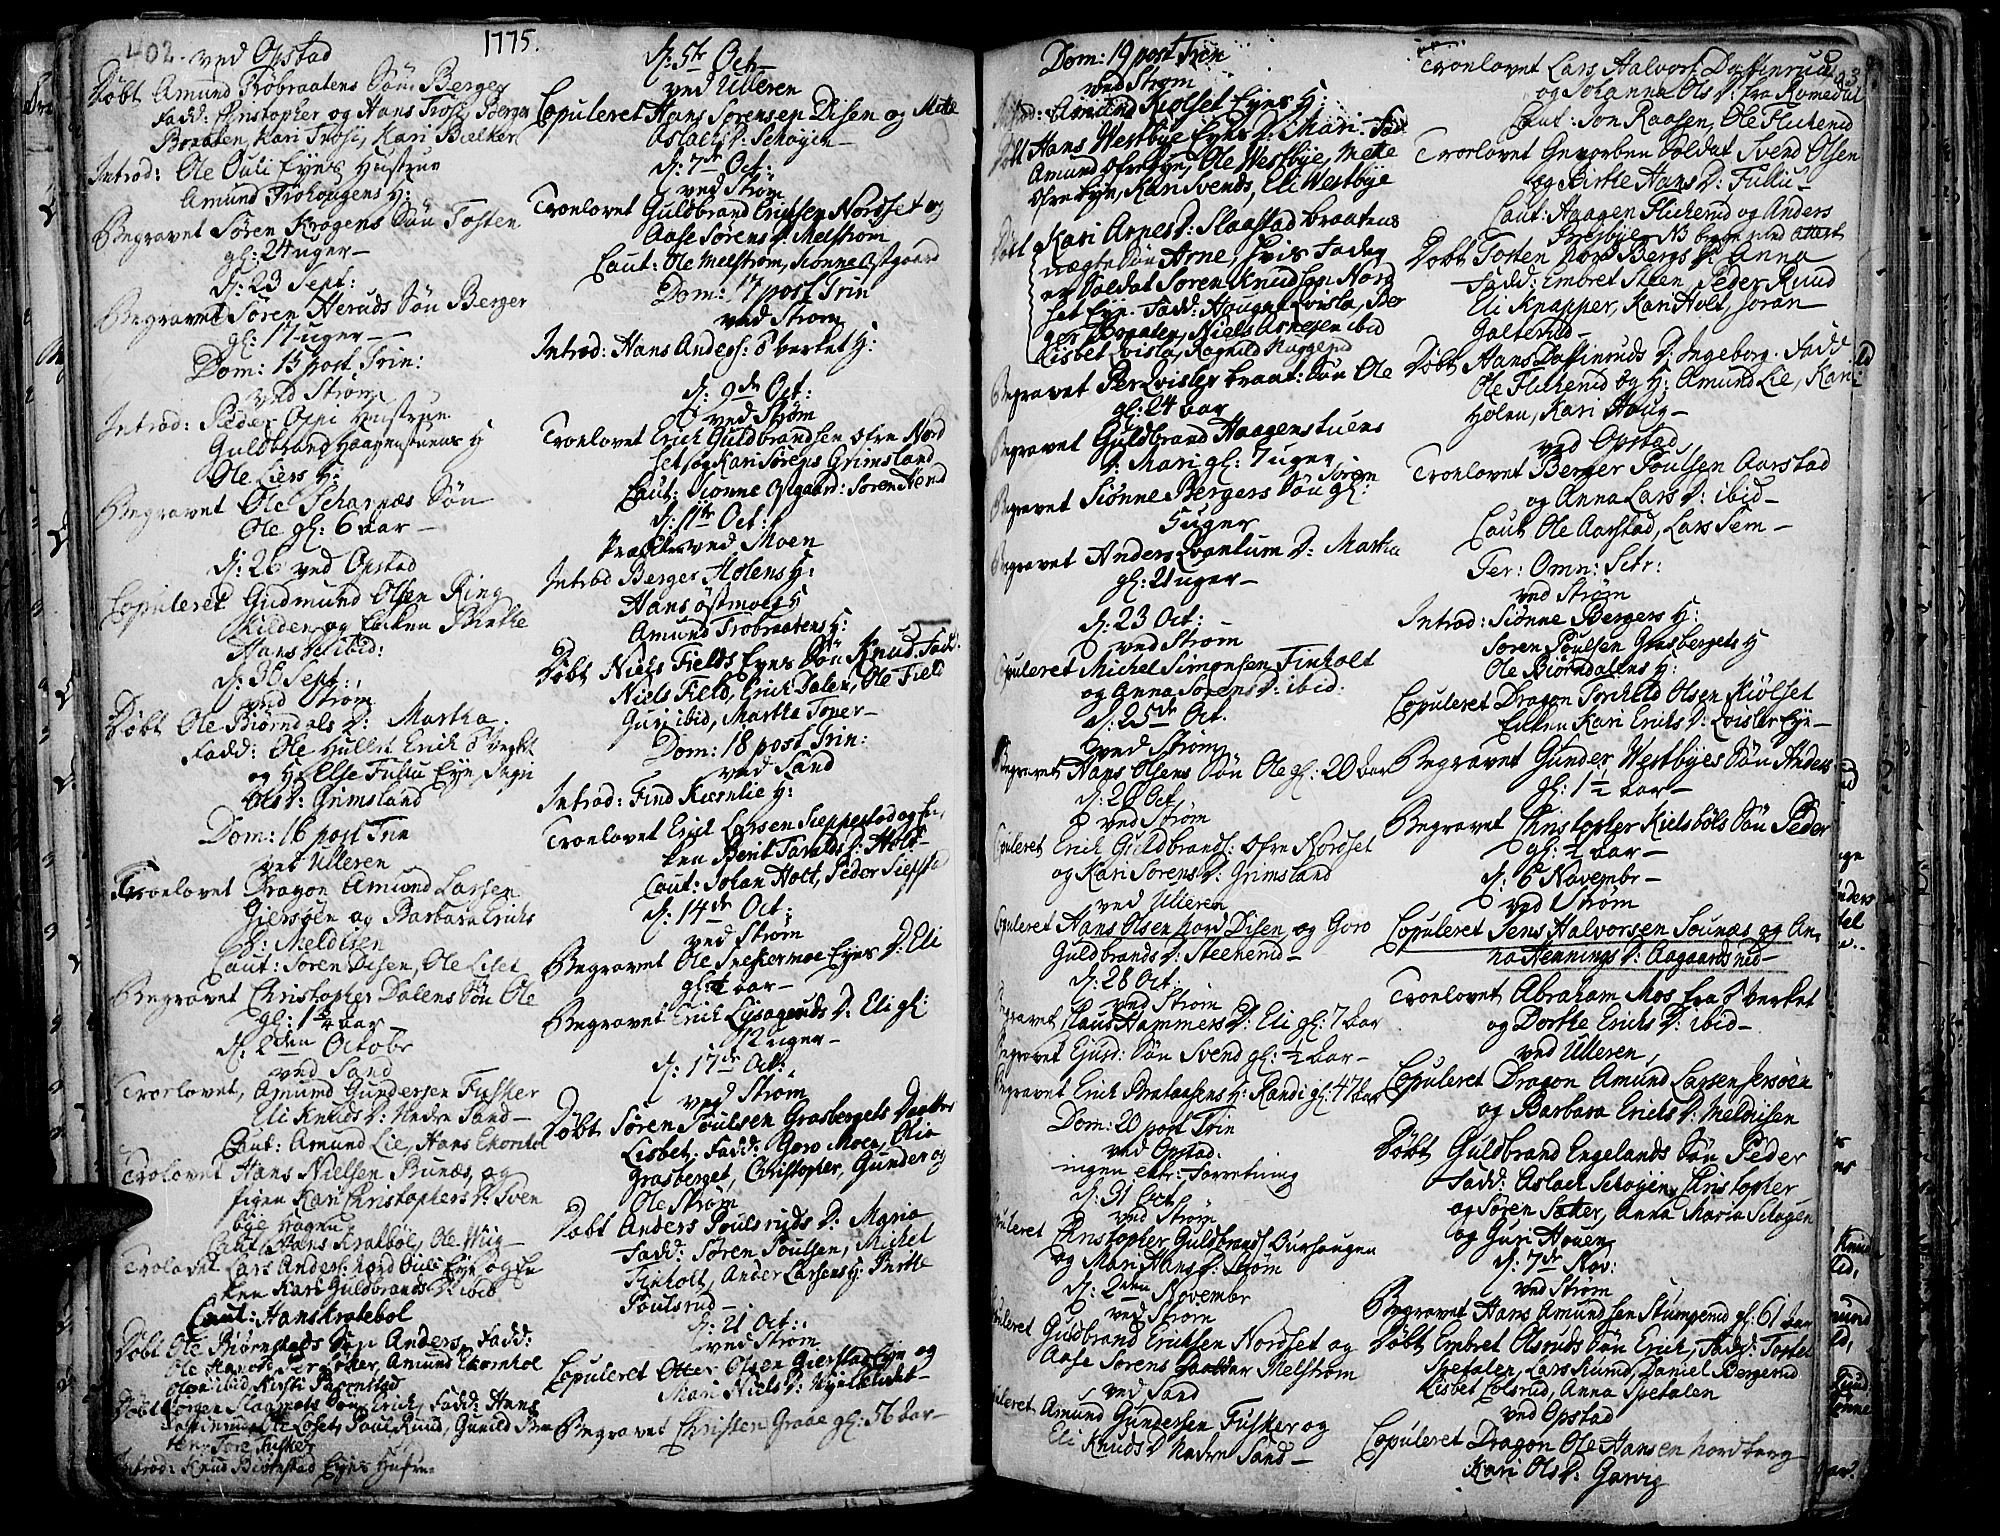 402.
1775.
ved Opstad
Døbt Amund Frøbraatens Søn Berger
Fadd: Christopher og Hans Frosi, Berger
Braaten, Kari Frosi, Kari Bælker
Introd: Ole Ouli Eyes Hustrue
Amund Frohougens H:
Begravet Søren Krogens Søn Tosten
gl: 24 uger —
d: 23 Sept:
Begravet Søren Heruds Søn Berger
gl: 17 uger —
Dom: 15 post Trin:
ved Strøm
Introd: Peder Ospi Hustrue
Guldbrand Haagenstuens H
Ole Liers H:
Begravet Ole Scharnæs Søn
Ole gl: 6 aar —
d: 26 ved Opstad
Copuleret Gudmund Olsen Ring
Kilden og Enken Birthe
Hans D: ibid:
d: 30 Sept:
ved Strøm
Døbt Ole Biørndals D: Martha.
Fadd: Ole Hullet Erich
og H: Else Fulu Eye
Ols D: Grimsland
Dom: 16 post Trin
ved Ulleren
Troelovet Dragon Amund Larsen
Giersøen og Barbara Erichs
D: Meldisen
Caut: Søren Disen, Ole Liset
Begravet Christopher Dalens Søn Ole
gl: 1 3/4 aar —
d: 2den Octobr
ved Sand
Troelovet, Amund Gundersen Fusker
Eli Knuds D: Nedre Sand —
Caut: Amund Lie, Hans Ekornhol
Trolovet Hans Nielsen Bunæs, og
Pigen Kari Christophers D: Sven
bye
Caut Hans Kratbøl, Ole Wiig —
Trolovet Lars Anders: Nord Ouli Eye og En
ken Kari Guldbrands D: ibid
Caut: Hans Kratebol
Døbt Ole Biørnstads Søn Anders, Fadd:
Amund Ekornhol
ibid, Kirsti
Døbt Jørgen Slaamots Søn Erich, Fadd: Hans
Ole Loset, Paul Ruud, Gunild Bra
ten, Tore Fusker
Introd: Knud Biørnstad Eyes Hustr:
d: 5te Oct —
ved Ulleren
Copuleret Hans Sørensen Disen og Mette
Aslachs D: Schøyen —
d: 7de Oct:
ved Strøm
Troelovet Guldbrand Erichsen Nordset og
Aase Sørens D: Melstrøm
Caut: Ole Melstrøm, Siønne Ostgaard
Dom: 17 post Trin
ved Strøm
Introd: Hans Anders: Verket H:
d: 9de Oct:
ved Strøm
Troelovet Erich Guldbrandsen øfre Nord
set og Kari Sørens Grimsland
Caut: Siønne Ostgaard: Søren Herud
d: 11te Oct:
ved Moen
Introd Berger Holens H:
Hans Østmoes H
Amund Frøbraatens H:
Døbt Niels Fields Eyes Søn Knud, Fadd:
Niels Field, Erich Dalen, Ole Field
Guri ibid, Martha Toner —
Dom: 18 post Trin:
ved Sand
Introd: Find Kiernlie H:
Troelovet Erich Larsen Sieppestad og En,
ken Berit Taralds D: Holt —
Caut: Johan Holt, Peder Siepst
d: 14de Oct:
ved Strøm
Begravet Ole Snekermoe Eyes D: Eli
gl: 1 aar —
Begravet Erich Lysageruds D: Eli gl:
12 uger —
d: 17de Oct:
ved Strøm
Døbt Søren Poulsen Grasbergets Daatter
Lisbet. Fadd: Goro Moen, Olia
Grasberget, Christopher, Gunder og
Ole Strøm
Døbt Anders Poulsruds D: Maria
Fadd: Søren Poulsen, Michel
Finholt, Ander Larsens H: Birthe
Poulsrud —
d: 21 Oct:
ved Strøm
Copuleret Otter Olsen Gierstad Eye og
Mari Niels D:
Begravet Christen Graae gl: 56 aar —
Dom: 19 post Trin
ved Strøm
Introd: Amund Kiølset Eyes H:
Døbt Hans Westbye Eyes D: Mari. Fad.
Amund Ofre Eye, Ole Westbye, Mette
Ofre Eye, Kari Svends, Eli Westbye
Døbt Kari Arnes D: Slaastad Braatens
uægte Søn Arne, hvis Fader
er Soldat Søren Knudsen Nord
set Eye. Fadd: Hougen Qvisla, Ber
ger Braaten, Niels Arnesen ibid
Lisbet Qvisla, Ragnild Kuggerud
Begravet Per Qvisler braat: Søn Ole
gl: 24 aar
Begravet Guldbrand Haagenstuens
D: Mari gl: 7 uger
Begravet Siønne Bergers Søn Søren gl:
5 uger
Begravet Anders Qvantum D: Martha
gl: 21 uger —
d: 23 Oct:
ved Strøm
Copuleret Michel Simonsen Finholt
og Anna Sørens D: ibid:
d: 25de Oct.
ved Strøm
Begravet Hans Olsens Søn Ole gl: 20 aar
d: 26 Oct
ved Strøm
Copuleret Erich Guldbrands: øfre Nordset
og Kari Sørens D: Grimsland
ved Ulleren
Copuleret Hans Olsen Nord Disen og Goro
Guldbrands D: Steenerud —
d: 28 Oct.
ved Strøm
Begravet Claus Hammers D: Eli gl: 7 aar
Begravet Ejusd: Søn Svend gl: 1/2 aar —
Begravet Erich Brataasens H: Randi gl: 47 aar
Dom: 20 post Trin
ved Opstad.
ingen extr: Forretning
d: 31 Oct.
ved Strøm
Copuleret Christopher Guldbrands: Burhougen
og Mari Hans D: Strøm
d: 2den Novembr
ved Strøm
Copuleret Guldbrand Erichsen Nordset og
Aase Sørens Daatter Melstrøm
ved Sand
Copuleret Amund Gundersen Fusker og
Eli Knuds D Nedre Sand —
403
Troelovet Lars Halvors: Daffinrud
og Johanna Ols D: fra Romedal
Caut: Jon Raasen, Ole Flicherud
Troelovet Geworben Soldat Svend Olsen
og Birthe Hans D: Fulu —
Caut: Haagen Flicherud og Anders
Bræsbye NB begge med attest
Døbt Tosten Nord Bergs D: Anna
Fadd: Embret Skeen, Peder Ruud
Eli Knapper, Kari Holt, Joran
Galterud —
Døbt Hans Daffinruds D: Ingeborg. Fadd.
Ole Flicherud og H: Amund Lie, Kari
Holen, Kari Houg —
ved Opstad
Troelovet Berger Poulsen Aarstad
og Anna Lars D: ibid —
Caut Ole Aarstad, Lars Sem —
Fer: Omn: Sctr:
ved Strøm
Introd: Siønne Bergers H:
Søren Poulsen Grasbergets H
Ole Biørndalens H:
Copuleret Dragon Torchild Olsen Kiølset
Enken Kari Erichs D: Qvisler Eye —
Begravet Gunder Westbyes Søn Anders
gl: 1 1/2 aar —
Begravet Christopher Kielsbøls Søn Peder
gl: 1/2 aar —
d: 6 Novembr —
ved Strøm
Copuleret Jens Halvorsen Sounæs og An,
na Hennings D: Aagaards Nid —
Troelovet Abraham Mos fra Verket
og Dorthe Erichs D: ibid —
ved Ulleren
Copuleret Dragon Amund Larsen Jersøen
og Barbara Erichs D: Meldisen
Døbt Guldbrand Engelands Søn Peder
Fadd: Aslach Schøyen, Christopher
og Søren Sætter, Anna Maria Schøyen
og Guri Houen
d: 7de Nov:
ved Strøm
Begravet Hans Amundsen Stumperud gl: 61 aar
Døbt Embret Olsruds Søn Erich, Fadd: Tostel
Spetalen, Lars Riund, Daniel Bergerud
Lisbet Colsrud, Anna Spetalen
ved Opstad
Copuleret Dragon Ole Hansen Nordberg
Kari Ols D: Garvig